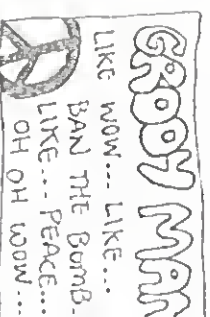 GROOVY MAN
LIKE WOW... LIKE...
BAN THE BOMB.
LIKE... PEACE...
OH OH WOW...